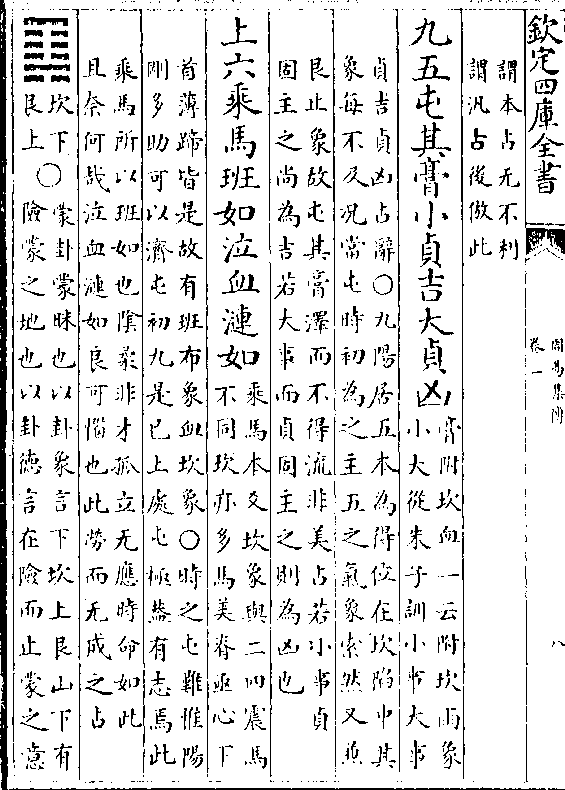 欽定四庫全書
周易集傳
卷一
八
謂本占无不利
謂汎占後倣此
九五屯其膏小貞吉大貞凶
膏附坎血一云附坎雨象
小大從朱子訓小事大事
貞吉貞凶占辭〇九陽居五本為得位在坎陷中其
象每不及况當屯時初為之主五之氣象索然又
艮止象故屯其膏澤而不得流非美占若小事貞
固主之尚為吉若大事而貞固主之則為凶也
上六乘馬班如泣血漣如
乘馬本爻坎象與二四震馬
不同坎亦多馬美脊亟心下
首薄蹄皆是故有班布象血坎象〇時之屯難惟陽
剛多助可以濟屯初九是已上處屯極葢有志焉此
乘馬所以班如也陰柔非才孤立无應時命如此
且奈何哉泣血漣如良可憫也此勞而无成之占
䷃
坎下
艮上
〇蒙卦蒙昧也以卦象言下坎上艮山下有
險蒙之地也以卦德言在險而止蒙之意